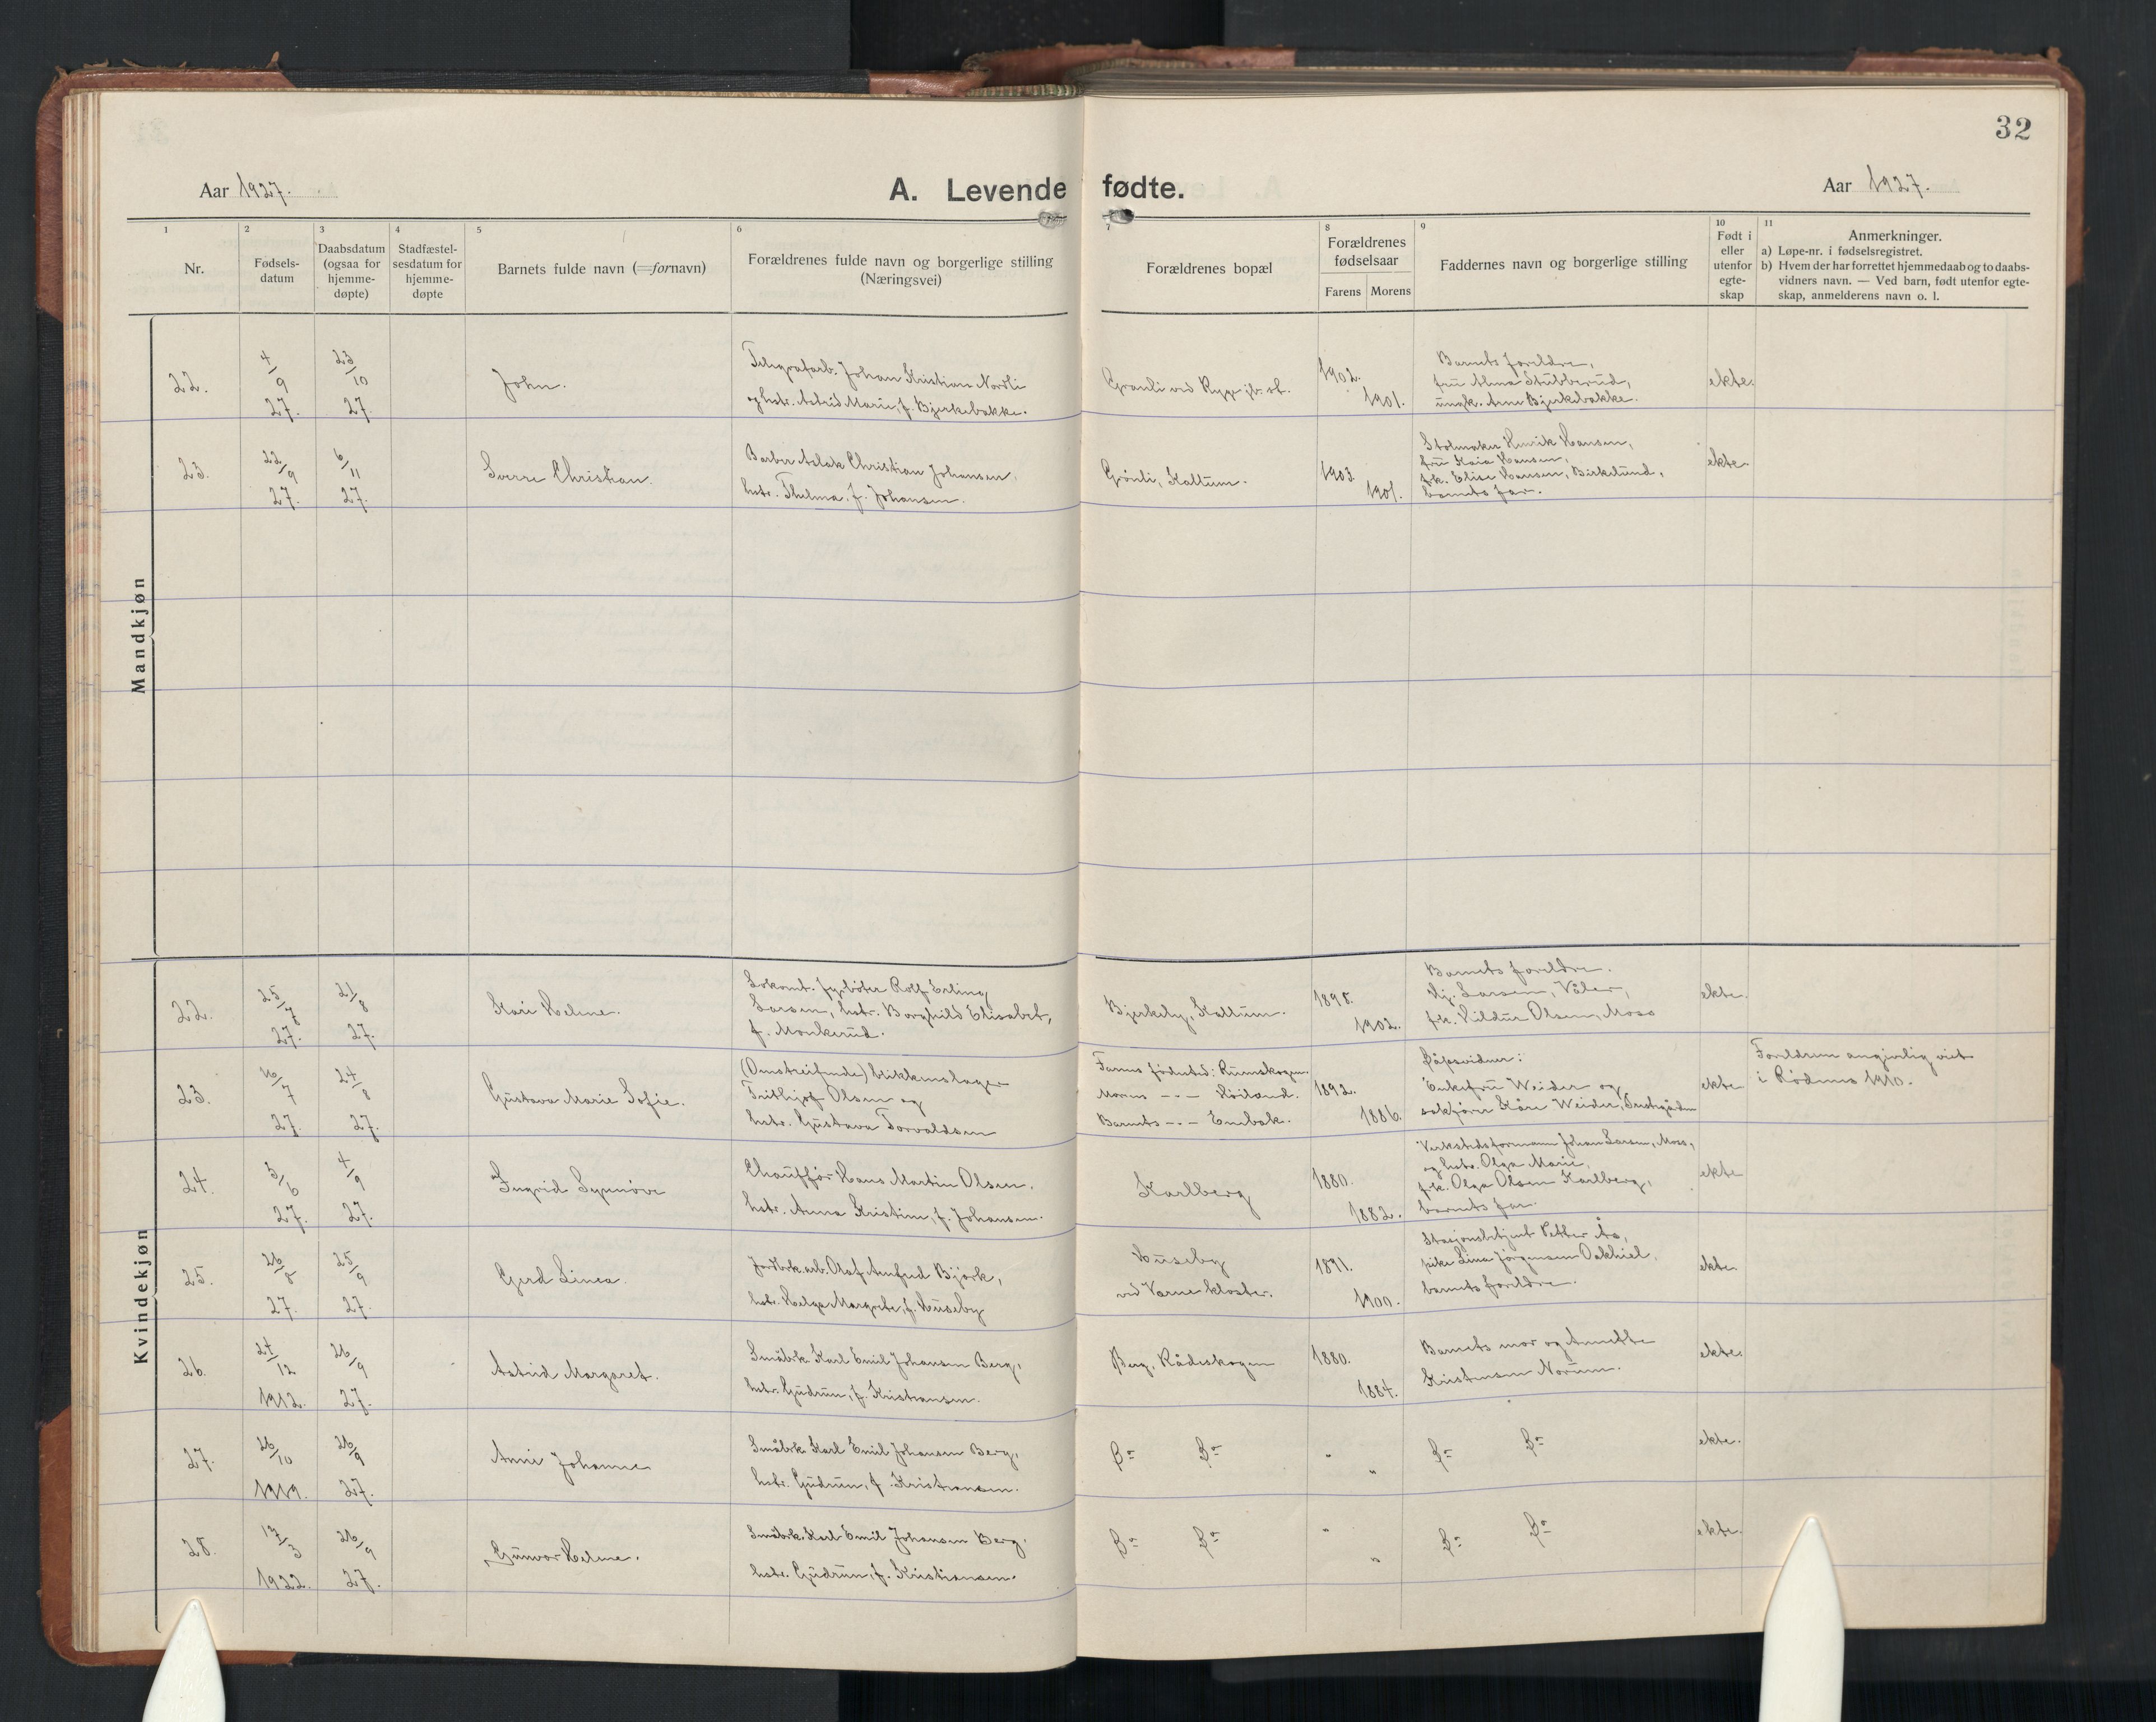 32
Aar 1927.
A. Levende fødte.
Aar 1927.
1
2
3
4
5
6
7
8
9
10
11
Nr.
Fødsels-
datum
Daabsdatum
(ogsaa for
hjemme-
døpte)
Stadfæstel-
sesdatum for
hjemme-
døpte
Barnets fulde navn (=fornavn)
Forældrenes fulde navn og borgerlige stilling
(Næringsvei)
Forældrenes bopæl
Forældrenes
fødselsaar
Farens
Morens
Faddernes navn og borgerlige stilling
Født i
eller
utenfor
egte-
skap
Anmerkninger.
a) Løpe-nr. i fødselsregistret.
b) Hvem der har forrettet hjemmedaab og to daabs-
vidners navn. — Ved barn, født utenfor egte-
skap, anmelderens navn o. l.
Mandkjøn
22.
4/9
27.
23/10
27.
John.
Telegrafarb. Johan Kristian Nordli
og hstr. Astrid Marie, f. Bjerkebakke.
Granli ved Rygge jb. st.
1902.
1901.
Barnets foreldre,
fru Alma Stubberud,
ungk. Arne Bjerkebakke.
ekte.
23.
22/9
27.
6/11
27.
Sverre Christian.
Barber Aslak Christian Johansen,
hstr. Thelma, f. Johansen.
Grønli, Kallum.
1903
1901.
Stolmaker Henrik Hansen,
fru Kaia Hansen,
frk. Elise Hansen, Birkelund,
barnets far.
ekte.
Kvindekjøn
22.
25/7
27.
21/8
27.
Kari Helene.
Lokomt. fyrbøter Rolf Erling
Larsen, hstr. Borghild Elisabet,
f. Munkerud.
Bjerkely, Kallum.
1898.
1902.
Barnets foreldre.
Hj. Larsen, Våler,
frk. Hildur Olsen, Moss
ekte.
23.
16/7
27.
24/8
27.
Gustava Marie Sofie.
(Omstreifende) blikkenslager
Frithjof Olsen og
hstr. Gustava Torvaldsen
Farens fødested: Rømskogen.
Morens -"- Høiland.
Barnets -"- Enebak.
1892.
1886.
Dåpsvidner:
Enkefru Weider og
sakfører Kåre Weider, Prestegården
ekte
Foreldrene angivelig viet
i Rødenes 1910.
24.
3/6
27.
4/9
27.
Ingrid Synnøve
Chauffør Hans Martin Olsen,
hstr. Anna Kristine, f. Johansen.
Karlberg
1880.
1882.
Verkstedsformann Johan Larsen, Moss,
og hstr. Olga Marie,
frk. Olga Olsen Karlberg,
barnets far.
ekte
25.
26/8
27.
25/9
27.
Gerd Linea.
Jordbrk.arb. Olaf Anfred Bjørk,
hstr. Helga Margrete, f. Huseby
Huseby
ved Varne kloster.
1891.
1900.
Stasjonsbetjent Petter Ås,
pike Lina Jørgensen Oakhiel,
barnets foreldre.
ekte
26.
24/12
1912.
26/9
27.
Astrid Margaret.
Småbrk. Karl Emil Johansen Berg,
hstr. Gudrun, f. Kristiansen.
Berg, Rådeskogen
1880.
1884.
Barnets mor og Annette
Kristensen Norum.
ekte.
27.
26/10
1919.
26/9
27.
Anni Johanne
Småbrk. Karl Emil Johansen Berg,
hstr. Gudrun, f. Kristiansen.
Do Do
" "
Do Do
ekte.
28.
17/3
1922.
26/9
27.
Gunvor Helene.
Småbrk. Karl Emil Johansen Berg,
hstr. Gudrun, f. Kristiansen.
Do Do
" "
Do Do
ekte.